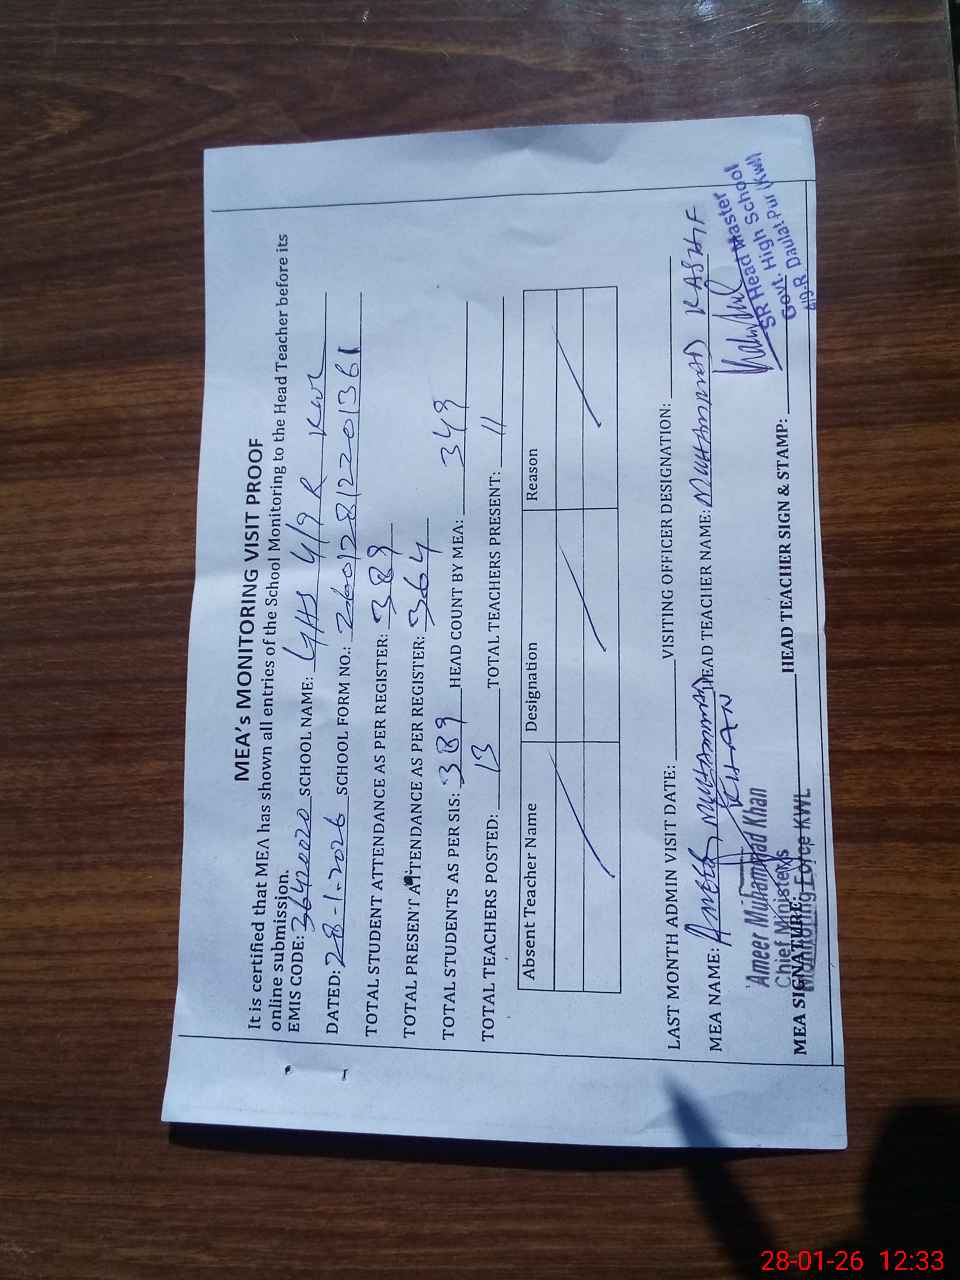 MEA's MONITORING VISIT PROOF
It is certified that MEA has shown all entries of the School Monitoring to the Head Teacher before its
online submission.
EMIS CODE: 36420020 SCHOOL NAME: GHS 4/9 R KWL
DATED: 28-1-2026 SCHOOL FORM NO.: 26012812201361
TOTAL STUDENT ATTENDANCE AS PER REGISTER: 389
TOTAL PRESENT ATTENDANCE AS PER REGISTER: 364
TOTAL STUDENTS AS PER SIS: 389 HEAD COUNT BY MEA: 349
TOTAL TEACHERS POSTED: 13 TOTAL TEACHERS PRESENT: 11
Absent Teacher Name Designation Reason
LAST MONTH ADMIN VISIT DATE: VISITING OFFICER DESIGNATION:
MEA NAME: AMEER MUHAMMAD KHAN HEAD TEACHER NAME: MUHAMMAD KASHIF
Ameer Muhammad Khan
Chief Minister's
Monitoring Force KWL
MEA SIGNATURE: HEAD TEACHER SIGN & STAMP:
SR Head Master
Govt. High School
4/9-R Daulat Pur (Kwl)
28-01-26 12:33